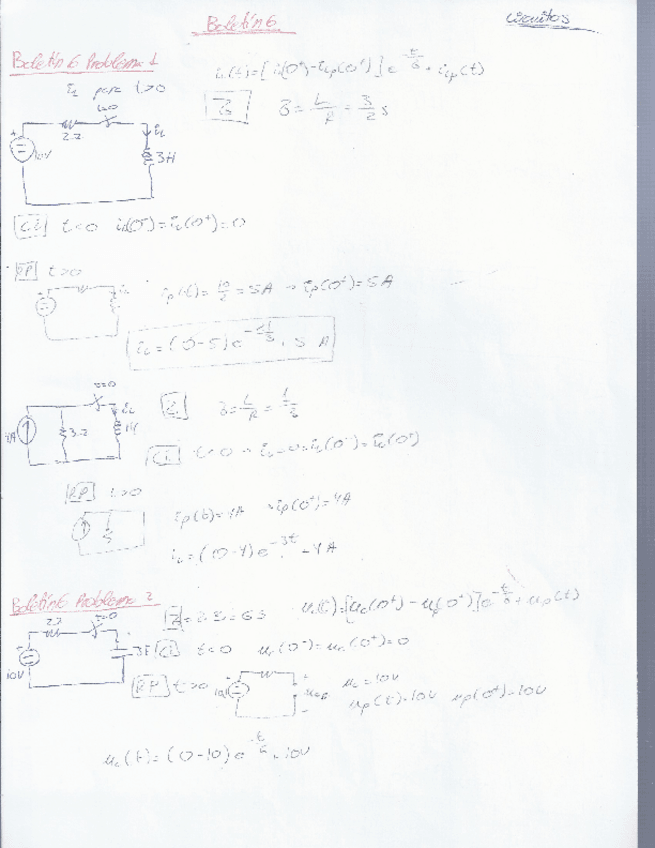 Boletín 6
Circuitos
Boletín 6 Problema 1
iL para t>0
t=0
2Ω
iL
10V
3H
iL(t)=[iL(0+)-iLp(0+)]e^-t/τ + iLp(t)
τ
τ = L/R = 3/2 s
CI t<0 iL(0-)=iL(0+)=0
RP t>0
ip(t)= 10/2 = 5A → ip(0+)= 5A
t=0
3Ω
iL
1H
τ
τ = L/R = 1/3
CI t<0 → iL=0=iL(0-)=iL(0+)
RP t>0
ip(t)=4A → ip(0+)=4A
iL=(0-4)e^-3t + 4A
Boletín 6 Problema 2
2Ω
t=0
10V
3F
τ = 2·3 = 6 s
uc(t)=[uc(0+) - up(0+)]e^-t/τ + up(t)
CI t<0 uc(0-)=uc(0+)=0
RP t>0
uc=10V
up(t)=10V up(0+)=10V
uc(t)=(0-10)e^-t/6 + 10V